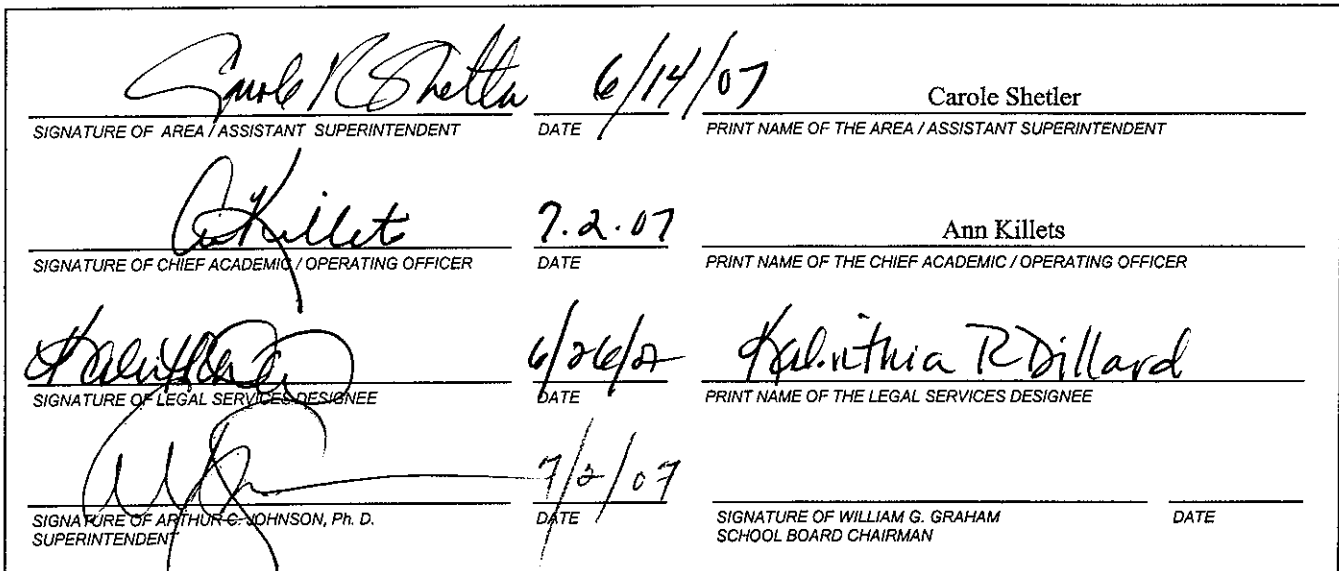 Carole R Shetler 6/14/07 Carole Shetler
SIGNATURE OF AREA / ASSISTANT SUPERINTENDENT DATE PRINT NAME OF THE AREA / ASSISTANT SUPERINTENDENT
A Killets 7.2.07 Ann Killets
SIGNATURE OF CHIEF ACADEMIC / OPERATING OFFICER DATE PRINT NAME OF THE CHIEF ACADEMIC / OPERATING OFFICER
6/26/07 Kalinthia R Dillard
SIGNATURE OF LEGAL SERVICES DESIGNEE DATE PRINT NAME OF THE LEGAL SERVICES DESIGNEE
7/2/07
SIGNATURE OF ARTHUR C. JOHNSON, Ph. D. DATE SIGNATURE OF WILLIAM G. GRAHAM DATE
SUPERINTENDENT SCHOOL BOARD CHAIRMAN